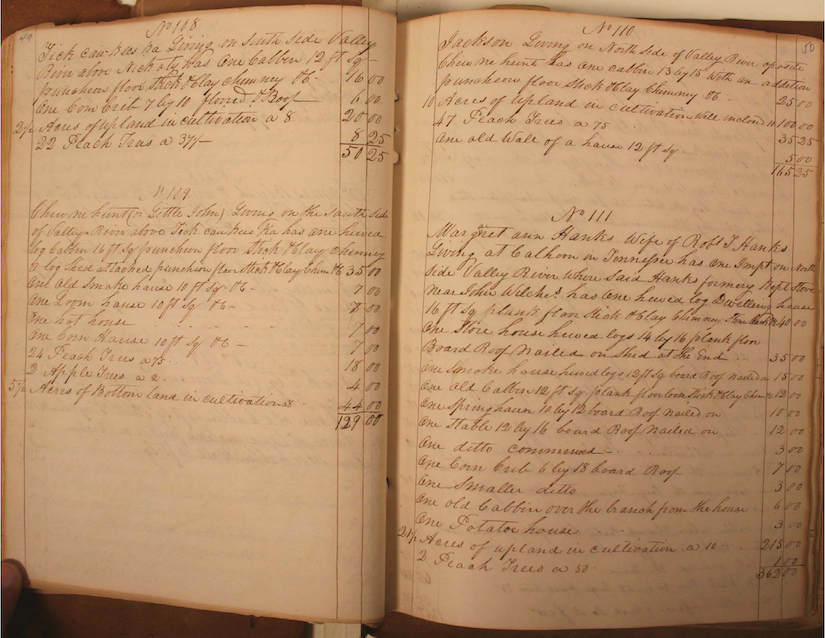 No 108
Tick caw hees ka Living on South Side Valley
River above Nick o ty was One Cabbin 12 ft Sqr
puncheon floor Stick & Clay Chimney &c 16 00
One Corn Crib 7 by 10 floored & Roof 6 00
2½ Acres of upland in cultivation a 8 20 00
22 Peach Trees a 37½ 8 25
50 25
No 109
Chew ne hunt (or Little John) Living on the South Side
of Valley River above Tick caw hees ka has One hewed
log Cabbin 16 ft Sqr puncheon floor Stick & Clay Chimney
a log Shed attached puncheon floor Stick & Clay Chim &c 35 00
One Old Smoke house 10 ft Sqr &c 7 00
One Loom house 10 ft Sqr &c
One hot house
One Corn House 10 ft Sqr &c 7 00
24 Peach Trees a 75 18 00
2 Apple Trees a 2 4 00
5½ Acres of Bottom land in cultivation a 8 44 00
129 00
50
No 110
Jackson Living on North Side of Valley River oposite
Chew ne hunt has One cabbin 13 by 15 With an addition
puncheon floor Stick & Clay Chimmy &c 25 00
10 Acres of upland in cultivation Well inclosd a 10 100 00
47 Peach Trees a 75 35 25
One old Wale of a house 12 ft Sq 5 00
165 25
No 111
Margret ann Hanks Wife of Robt T Hanks
Living at Calhoun in Tennessee has One Impt on North
side Valley River Where Said Hanks formery Kept Store
near John Welche's has One hewed log Dwelling house
16 ft Sq plank floor Stick & Clay Chimney 40 00
One Store house hewed logs 14 by 16 plank floor
Board Roof Nailed on Shed at the End 35 00
One Smoke house hewd logs 12 ft Sq board Roof nailed on 15 00
One Old Cabbin 12 ft Sq plank floor Stick & Clay Chim 12 00
One Spring hause 10 by 12 board Roof nailed on 10 00
One Stable 12 by 16 board Roof nailed on 12 00
One ditto commenced 3 00
One Corn Crib 6 by 18 board Roof 7 00
One Smaller ditto 3 00
One old Cabbin over the branch from the house 6 00
One Potatoe house 3 00
21½ Acres of upland in cultivation a 10 215 00
2 Peach Trees a 50 1 00
362 00